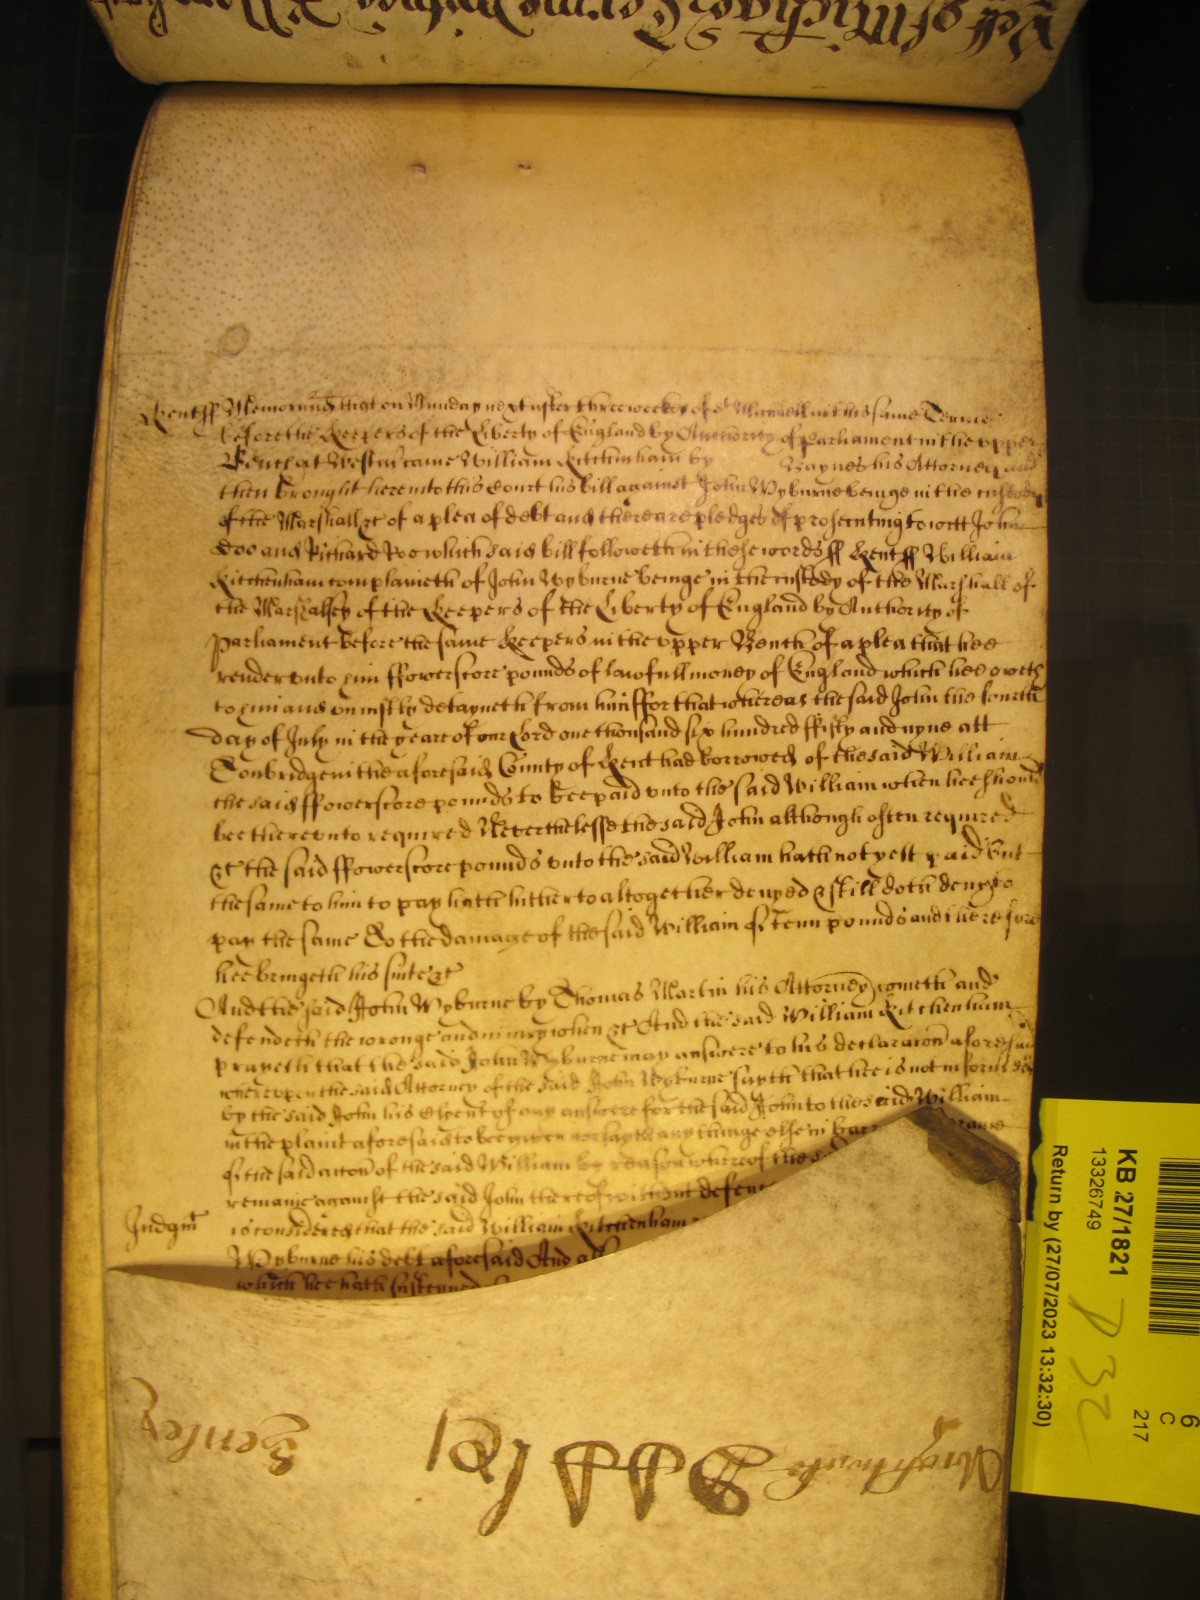 Kent ss Memorand that on Munday next after three weekes of St Michaell in this same Terme
before the Keepers of the Liberty of England by Authority of Parliament in the upper
Bench at Westmr came William Kitchinham by Baynes his Attorney and
then brought here into this Court his bill against John Wyburne beinge in the custody
of the Marshall &c of a plea of debt and there are pledges of prosecuting to witt John
Doo and Richard Roo which said bill followeth in these words ss Kent ss William
Kitchenham complaineth of John Wyburne beinge in the custody of the Marshall of
the Marshalsey of the Keepers of the Liberty of England by Authority of
Parliament before the same Keepers in the upper Bench of a plea that hee
render unto him ffowerscore pounds of lawfull money of England which hee oweth
to him and uniustly detayneth from him ffor that whereas the said John the fourth
day of July in the yeare of our Lord one thousand six hundred ffifty and nyne att
Tonbridge in the aforesaid County of Kent had borrowed of the said William
the said ffowerscore pounds to bee paid unto the said William when hee should
bee thereunto required Neverthelesse the said John although often required
&c the said ffowerscore pounds unto the said William hath not yett paid but
the same to him to pay hath hitherto altogether denyed & still doth deny to
pay the same To the damage of the said William of tenn pounds and therefore
hee bringeth his suite &c
And the said John Wyburne by Thomas Martin his Attorney cometh and
defendeth the wronge and iniury when &c And the said William Kitchenham
prayeth that the said John Wyburne may answere to his declaracon aforesaid
whereupon the said Attorney of the said John Wyburne sayth that hee is not informed
by the said John his Clyent of any answere for the said John to the said William
in the plaint aforesaid to bee given nor sayth any thinge else in barr
of the said accon of the said William by reason whereof the
remaine against the said John thereof without defence
Judgmt is considered that the said William Kitchenham
Wyburne his debt aforesaid And
which hee hath susteyned
KB 27/1821
13326749
Return by (27/07/2023 13:32:30)
P 32
6
C
217